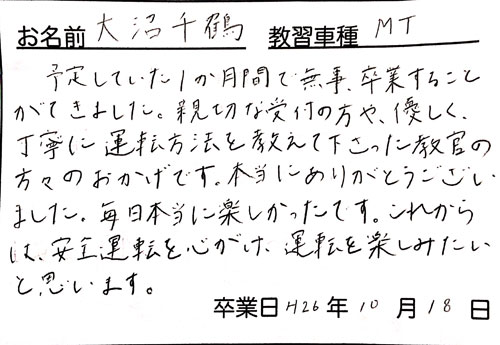 お名前 大沼千鶴 教習車種 MT
予定していた1か月間で無事、卒業すること
ができました。親切な受付の方や、優しく、
丁寧に運転方法を教えて下さった教官の
方々のおかげです。本当にありがとうござい
ました。毎日本当に楽しかったです。これから
は、安全運転を心がけ、運転を楽しみたい
と思います。
卒業日 H26年 10月 18日